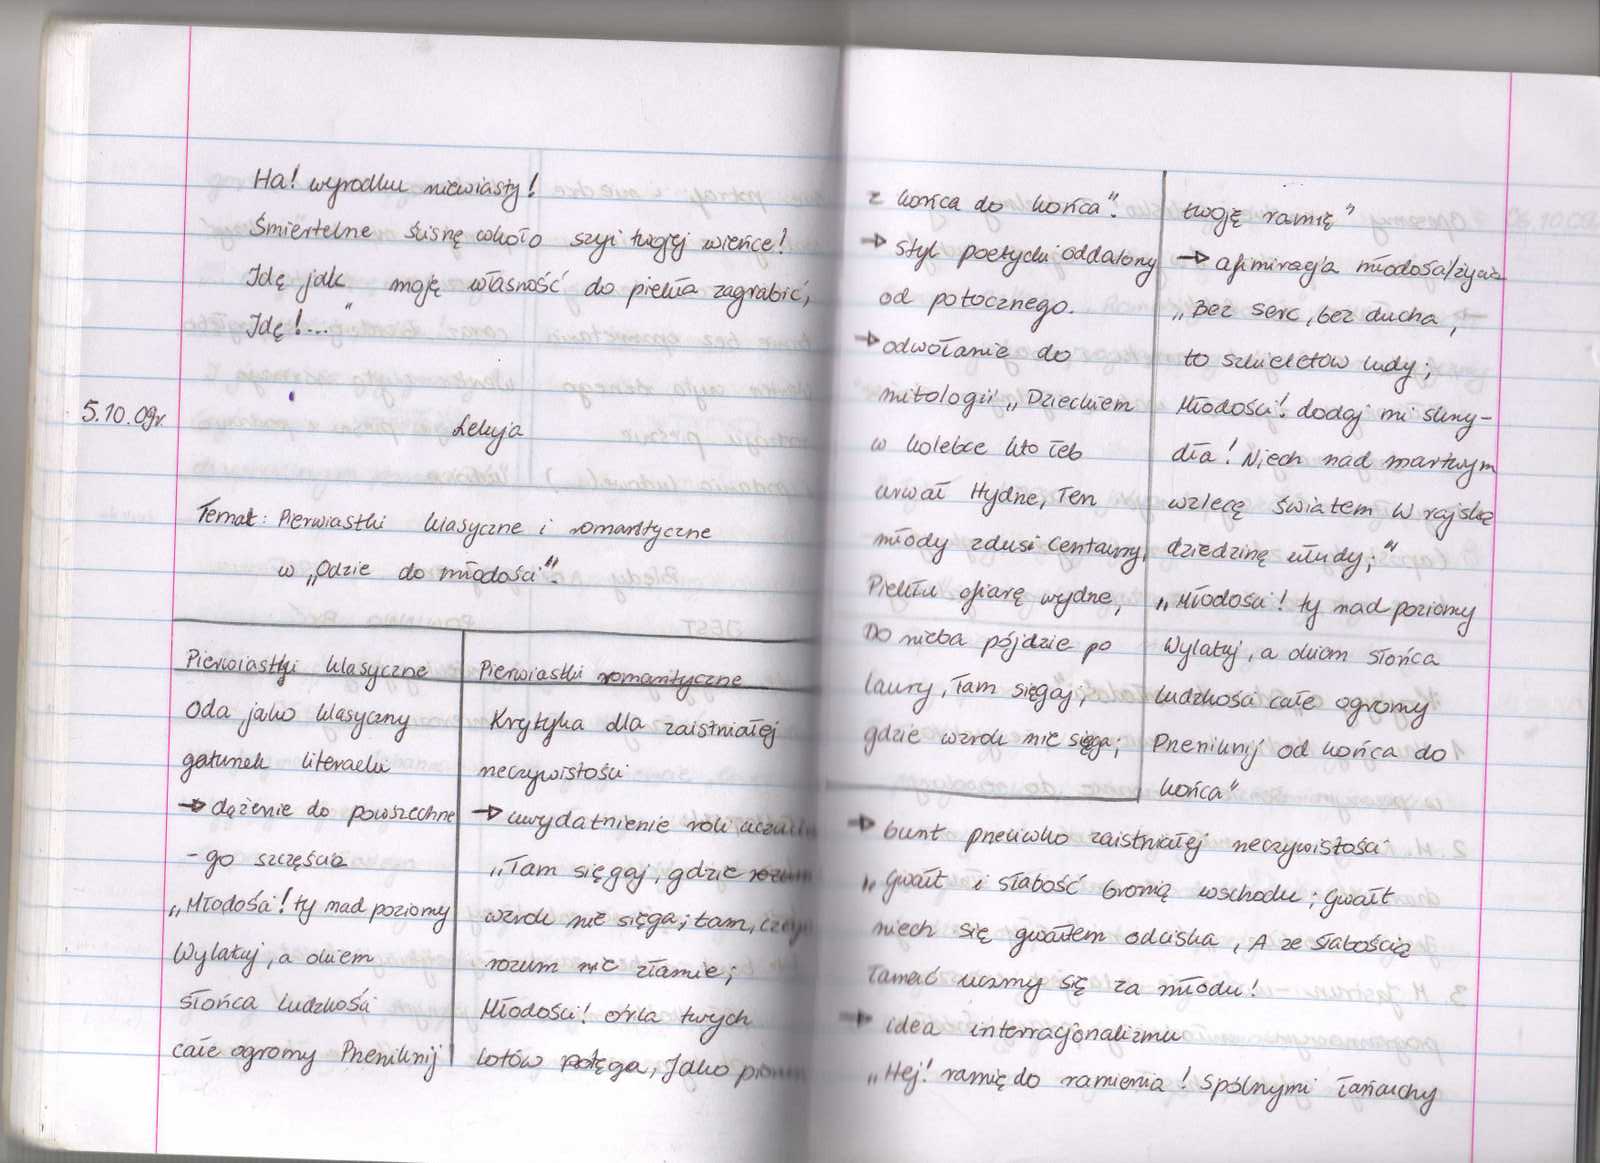 Ha! wyrodku niewiasty!
Śmiertelne ścisnę wkoło szyi twojej wieńce!
Idę jak moję własność do piekła zagrabić,
Idę!..."
5.10.09r.
Lekcja
Temat: Pierwiastki klasyczne i romantyczne
w „Odzie do młodości".
Pierwiastki klasyczne
Oda jako klasyczny
gatunek literacki
→ dążenie do powszechne
-go szczęścia
„Młodości! ty nad poziomy
Wylatuj, a okiem
słońca Ludzkości
całe ogromy Przeniknij
Pierwiastki romantyczne
Krytyka dla zaistniałej
rzeczywistości
→ uwydatnienie roli
„Tam sięgaj, gdzie
wzrok nie sięga; tam,
rozum nie złamie;
Młodości! orla twych
lotów potęga, Jako
z końca do końca".
→ styl poetycki oddalony
od potocznego.
→ odwołanie do
mitologii „Dzieckiem
w kolebce kto łeb
urwał Hydrze, Ten
młody zdusi Centaury,
Piekłu ofiarę wydrze,
Do nieba pójdzie po
laury, Tam sięgaj;
gdzie wzrok nie sięga;
twoję ramię"
→ afirmiracja młodości/życia
„Bez serc, bez ducha,
to szkieletów ludy;
Młodości! dodaj mi skrzy-
dła! Niech nad martwym
wzlecę światem W rajską
dziedzinę ułudy;"
„Młodości! ty nad poziomy
Wylatuj, a okiem słońca
Ludzkości całe ogromy
Przeniknij od końca do
końca"
→ bunt przeciwko zaistniałej rzeczywistości
„Gwałt i słabość bronią wschodu; Gwałt
niech się gwałtem odciska, A ze słabością
łamać uczmy się za młodu!
→ idea interracjonalizmu
„Hej! ramię do ramienia! Spólnymi łańcuchy